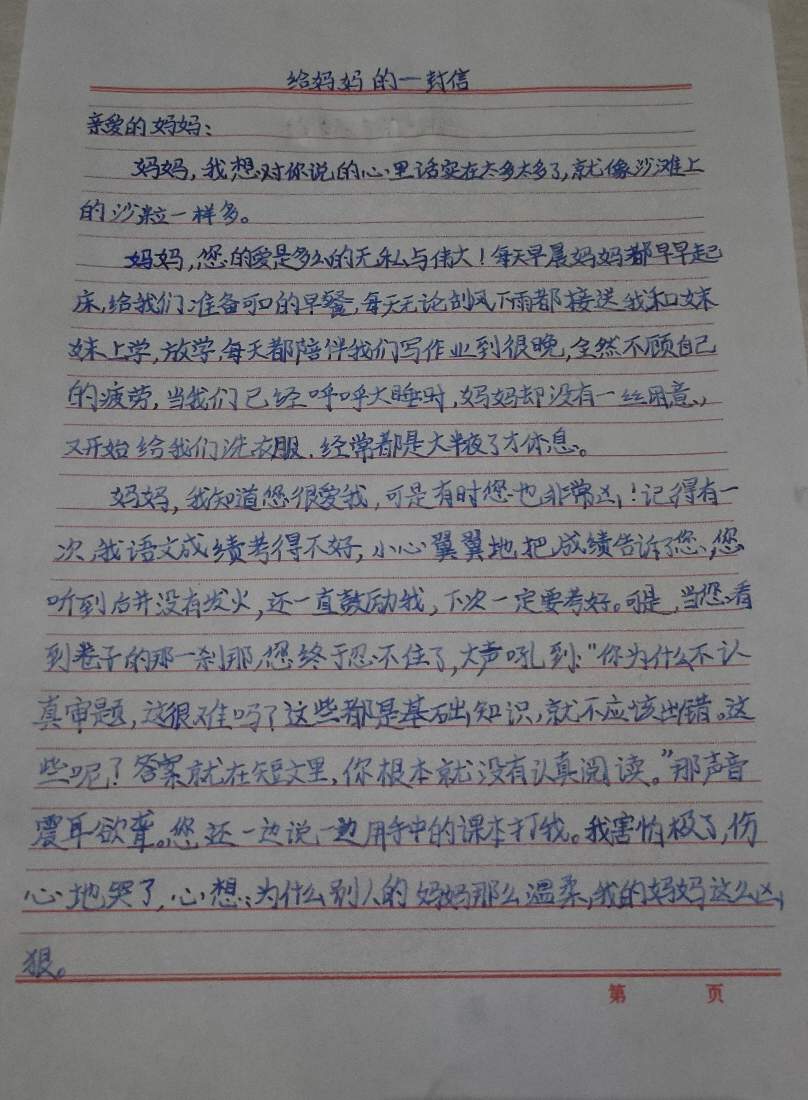 给妈妈的一封信
亲爱的妈妈：
妈妈，我想对你说的心里话实在太多太多了，就像沙滩上
的沙粒一样多。
妈妈，您的爱是多么的无私与伟大！每天早晨妈妈都早早起
床，给我们准备可口的早餐，每天无论刮风下雨都接送我和妹
妹上学，放学，每天都陪伴我们写作业到很晚，全然不顾自己
的疲劳，当我们已经呼呼大睡时，妈妈却没有一丝困意，
又开始给我们洗衣服，经常都是大半夜了才休息。
妈妈，我知道您很爱我，可是有时您也非常凶！记得有一
次，我语文成绩考得不好，小心翼翼地把成绩告诉了您，您
听到后并没有发火，还一直鼓励我，下次一定要考好。可是，当您看
到卷子的那一刹那，您终于忍不住了，大声吼到：“你为什么不认
真审题，这很难吗？这些都是基础知识，就不应该出错。这
些呢？答案就在短文里，你根本就没有认真阅读。”那声音
震耳欲聋。您还一边说，一边用手中的课本打我。我害怕极了，伤
心地哭了，心想：为什么别人的妈妈那么温柔，我的妈妈这么凶
狠。
第 页